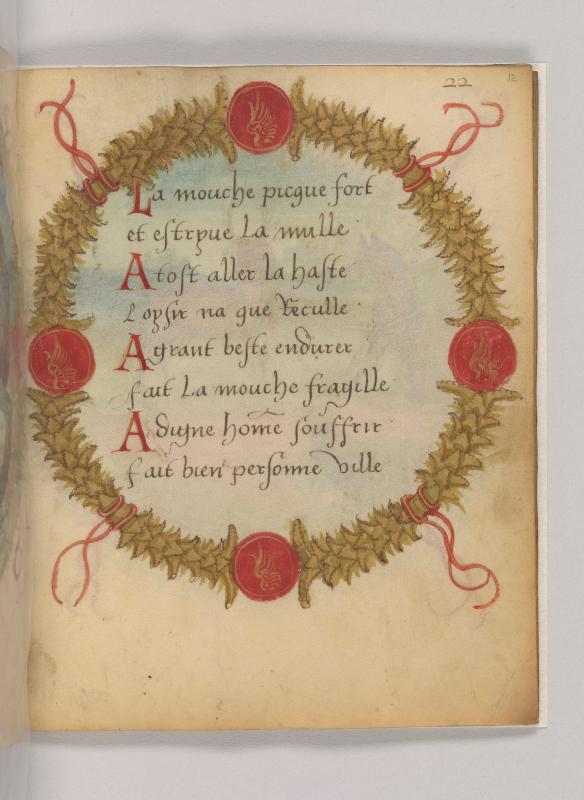 22 12
La mouche picque fort
et estrpue La mulle
A tost aller la haste
Lopsir na que Reculle
A grant beste endurer
fait La mouche fragille
A digne home souffrir
fait bien personne ville